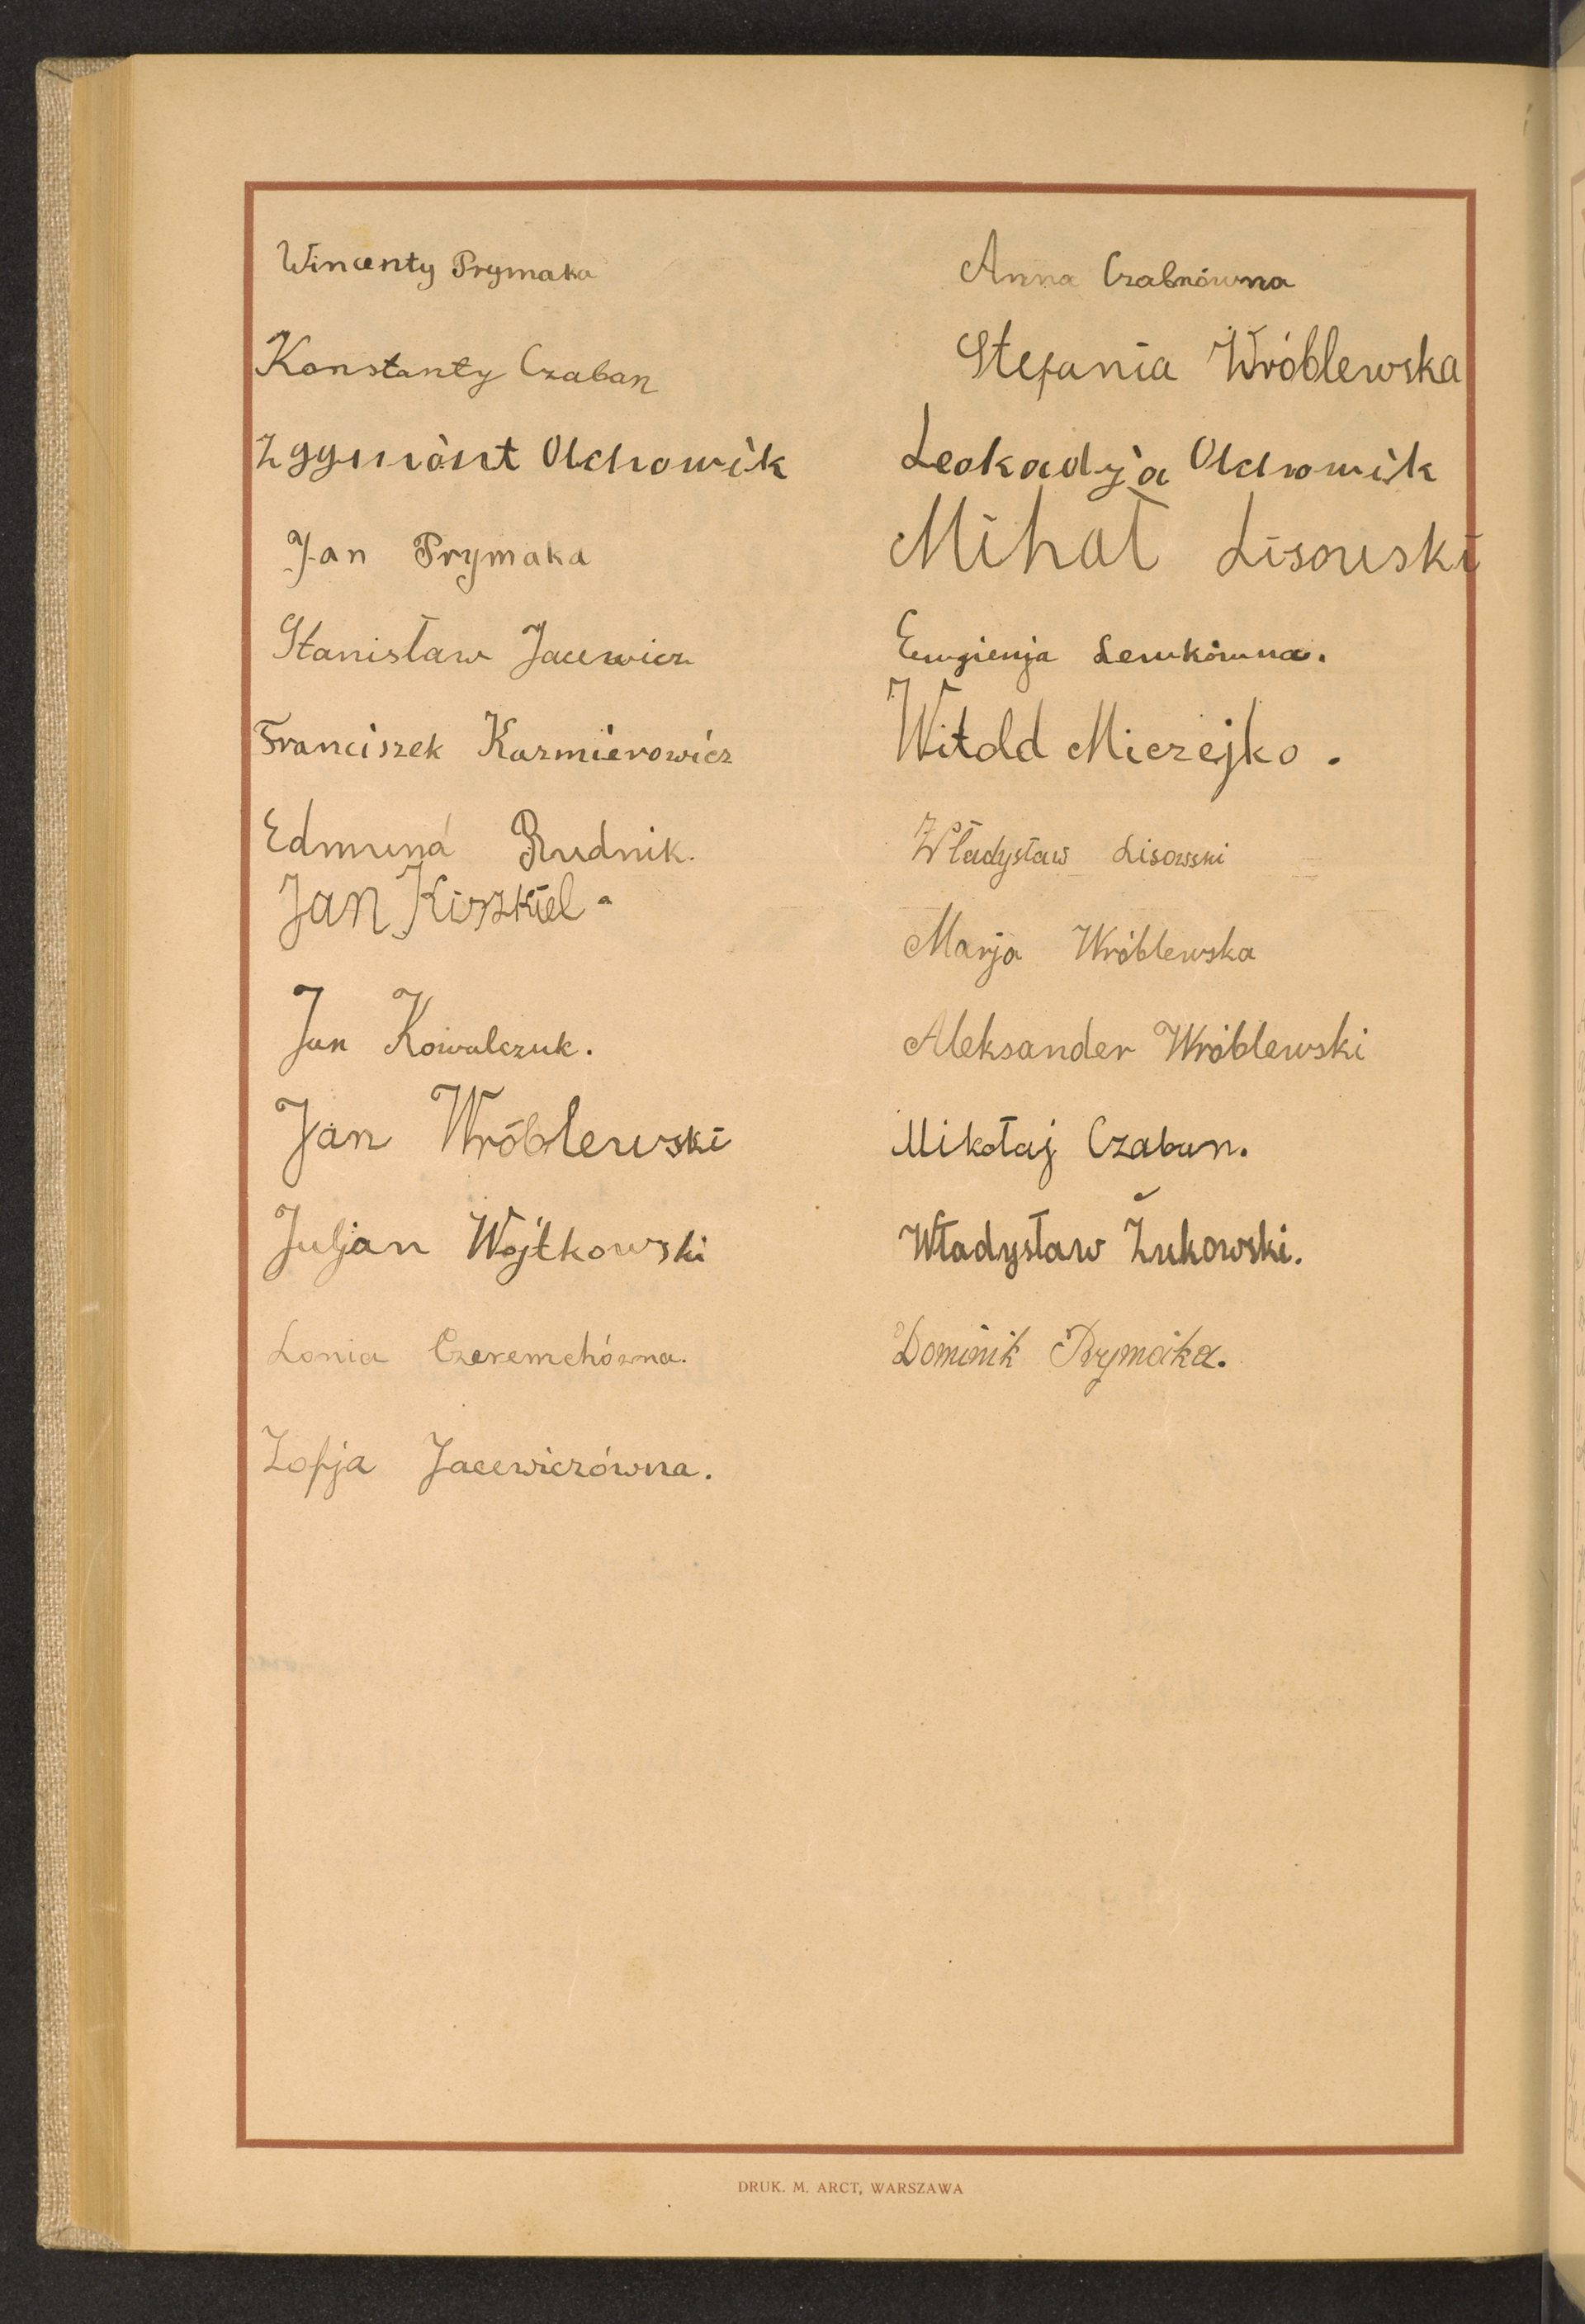 Wincenty Prymaka
Konstanty Czaban
Zygmont Olchowik
Jan Prymaka
Stanisław Jacewicz
Franciszek Kazmierowicz
Edmund Rudnik.
Jan Kiszkiel.
Jan Kowalczuk.
Jan Wróblewski
Juljan Wojtkowski
Lonia Czeremchówna.
Zofja Jacewiczówna.
Anna Czabnówna
Stefania Wróblewska
Leokadja Olchowik
Mihał Lisowski
Eugienja Lewkówna.
Witold Miczejko.
Władysław Lisowski
Marja Wróblewska
Aleksander Wróblewski
Mikołaj Czaban.
Władysław Żukowski.
Dominik Prymaka.
DRUK. M. ARCT, WARSZAWA